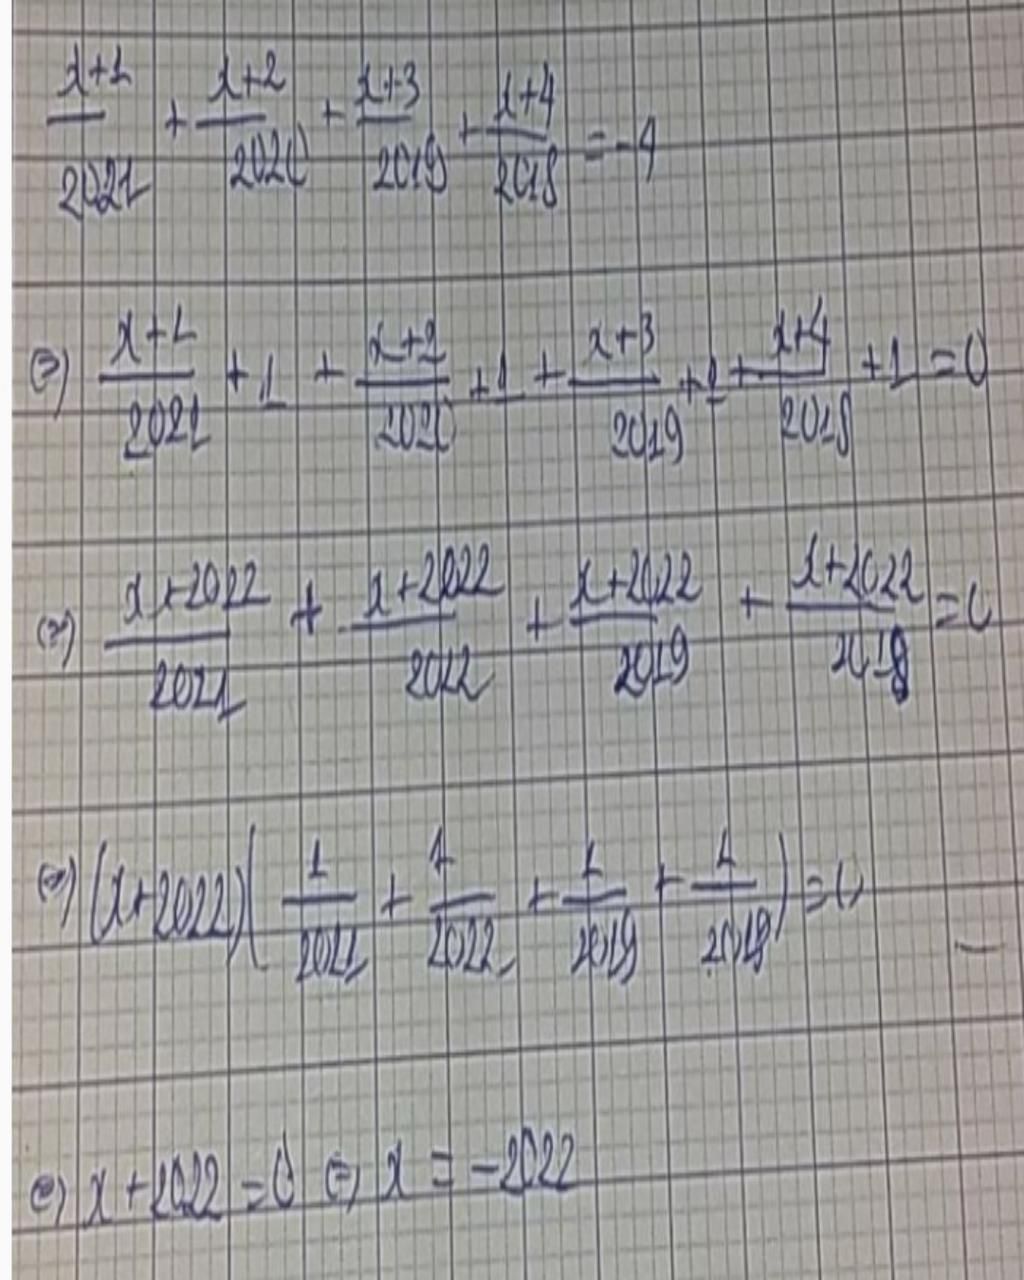 x+1/2021 + x+2/2020 + x+3/2019 + x+4/2018 = -4
⇔) x+1/2021 + 1 + x+2/2020 + 1 + x+3/2019 + 1 + x+4/2018 + 1 = 0
⇔) x+2022/2021 + x+2022/2022 + x+2022/2019 + x+2022/2018 = 0
⇔) (x+2022)(1/2021 + 1/2022 + 1/2019 + 1/2018) = 0
⇔) x+2022 = 0 ⇔) x = -2022